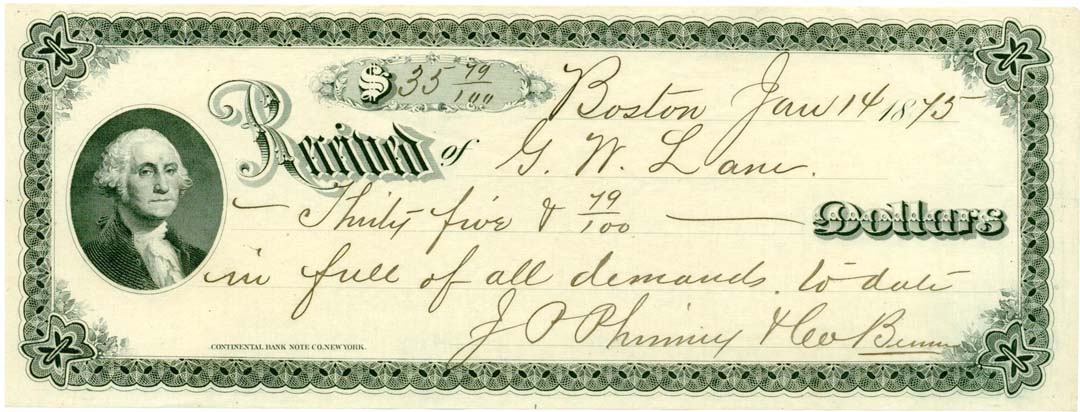 $ 35 79/100
Boston Jan 14 1875
Received of G. W. Lane.
Thirty five & 79/100 Dollars
in full of all demands. to date
J P Phinney & Co
CONTINENTAL BANK NOTE CO. NEW YORK.